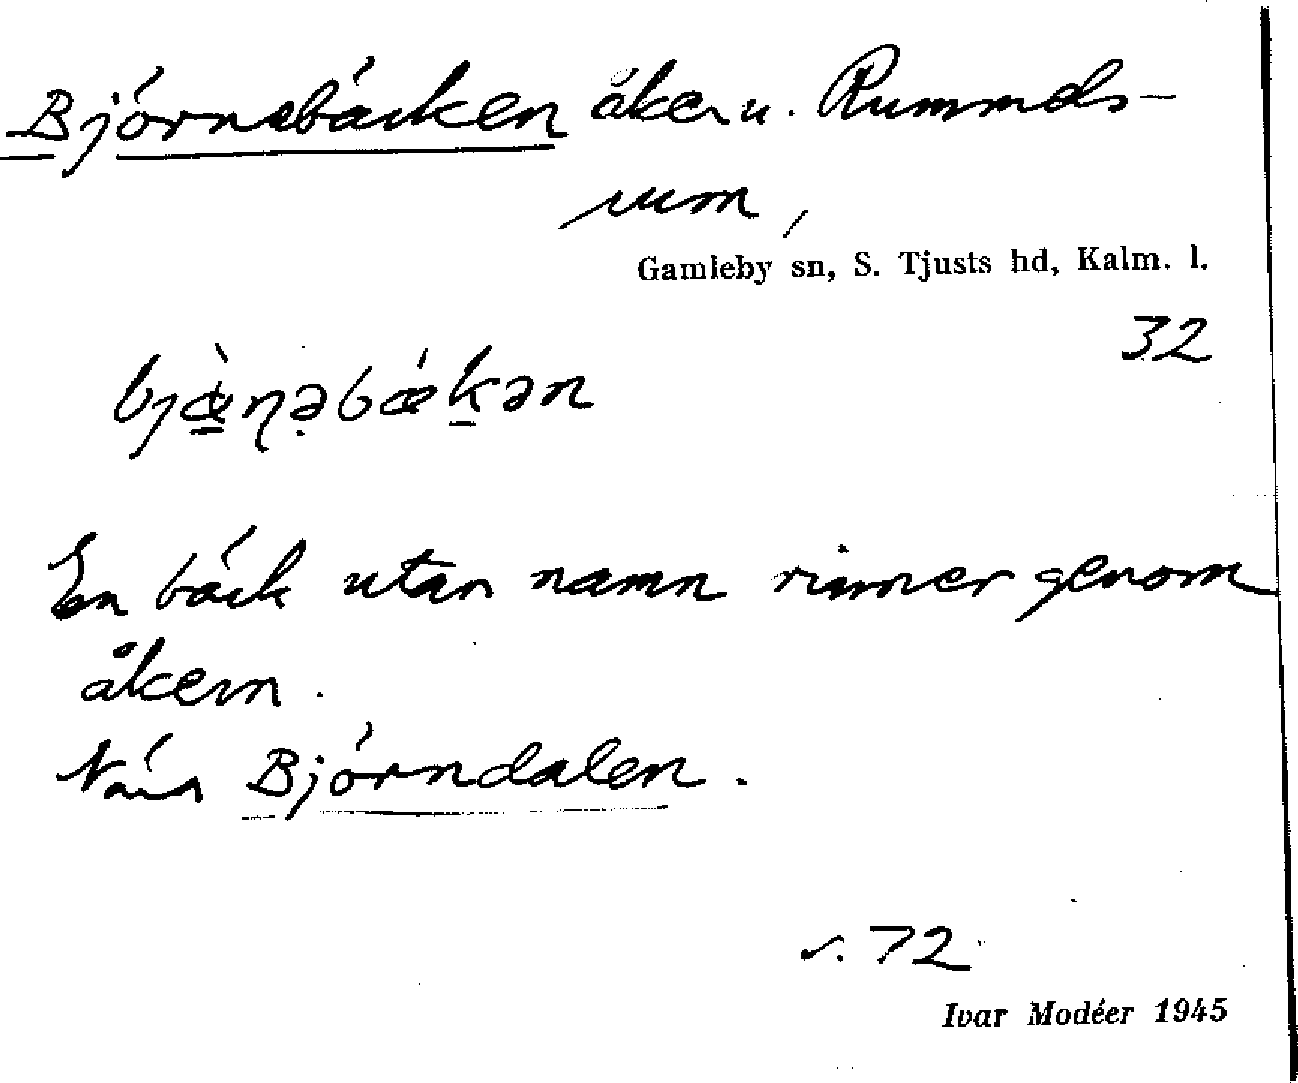 Björnebäcken åker u. Rummels-
rum,
Gamleby sn, S. Tjusts hd, Kalm. l.
32
En bäck utan namn rinner genom
åkern.
När Björndalen.
s. 72
Ivar Modéer 1945